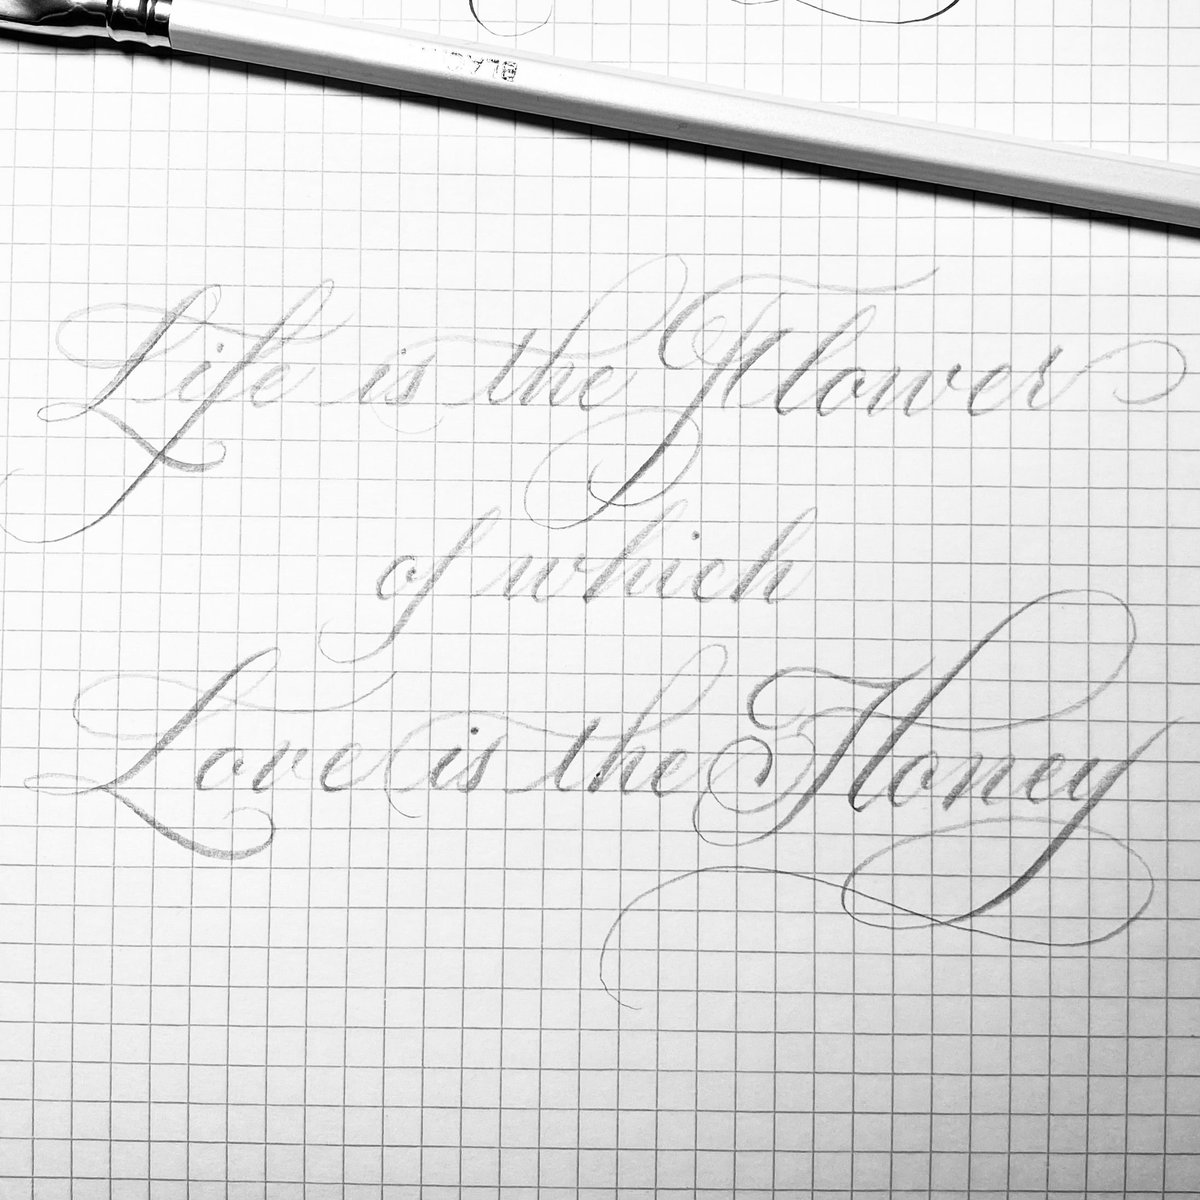 Life is the Flower
of which
Love is the Honey